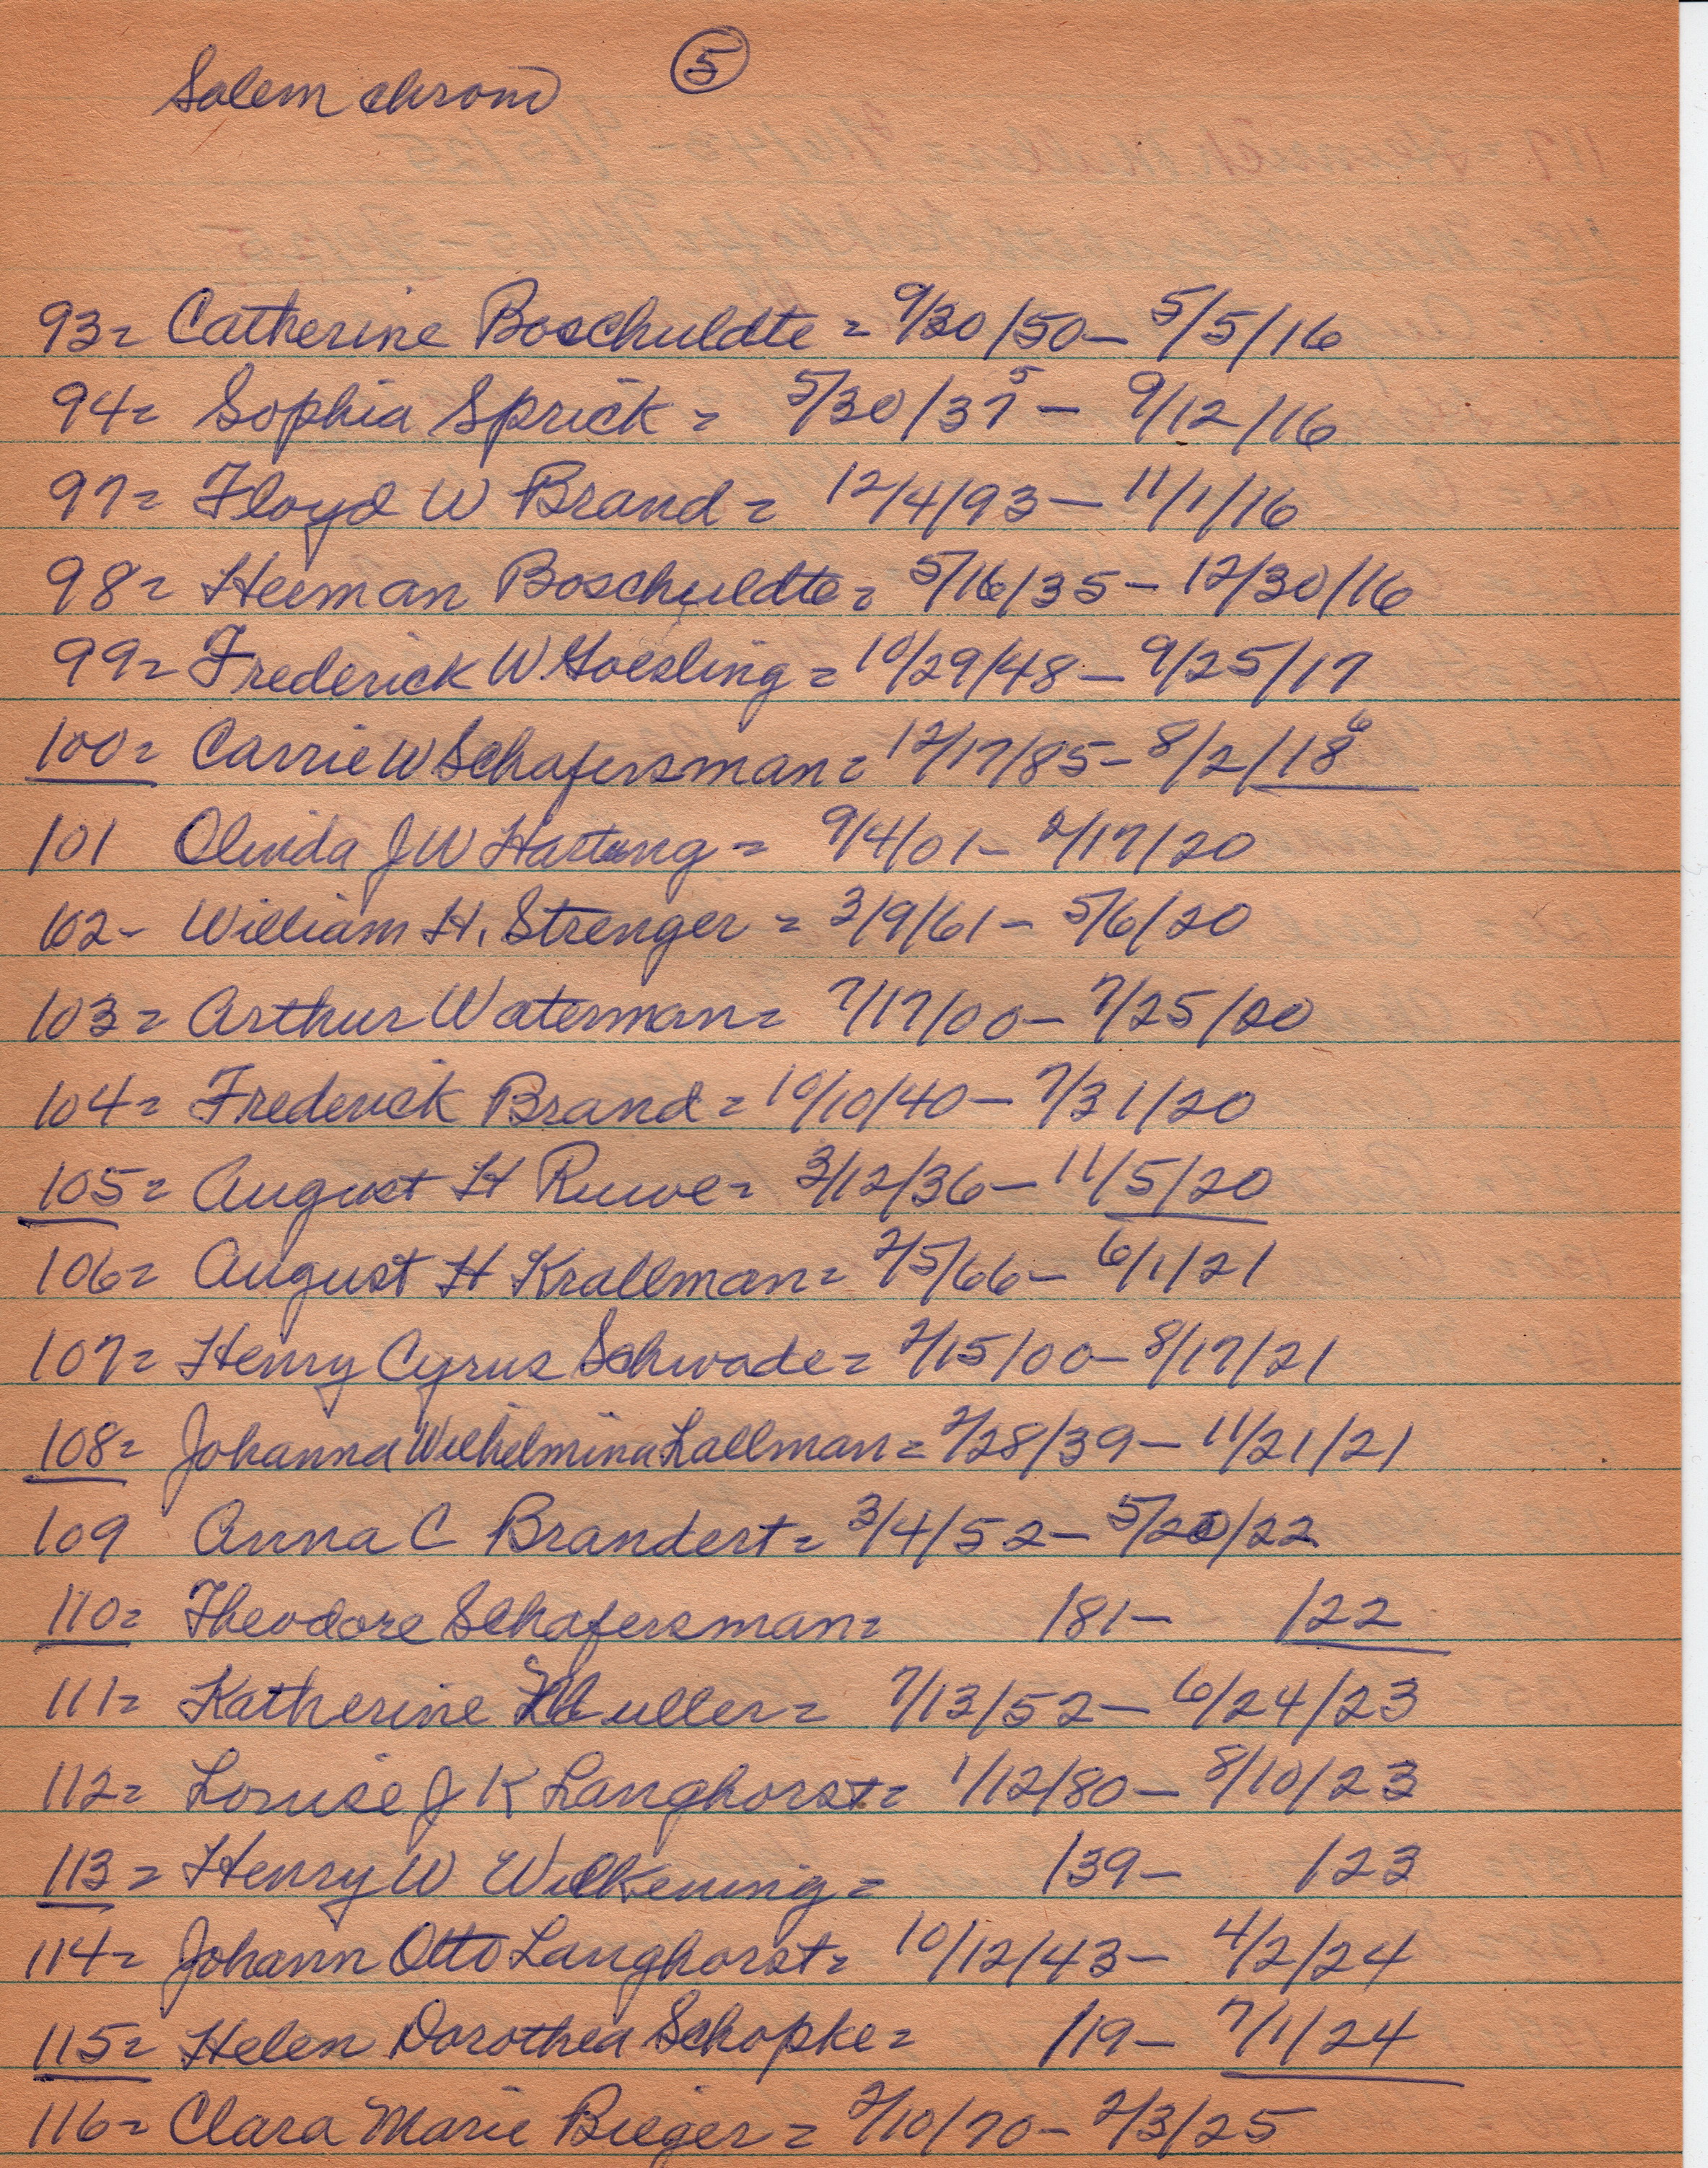 Salem chrono ⑤
93= Catherine Boschuldte = 9/30/50 - 5/5/16
94= Sophia Sprick = 5/30/37 5 - 9/12/16
97= Floyd W Brand = 12/4/93 - 11/1/16
98= Herman Boschuldte = 5/16/35 - 12/30/16
99= Frederick W Goesling = 10/29/48 - 9/25/17
100= Carrie W Schafersman = 12/17/85 - 8/2/18 6
101 Olinda J W Hartung = 9/4/01 - 2/17/20
102- William H. Strenger = 3/9/61 - 5/6/20
103= Arthur Waterman = 7/17/00 - 7/25/20
104= Frederick Brand = 10/10/40 - 7/31/20
105= August H Ruwe = 3/12/36 - 11/5/20
106= August H Krallman = 2/5/66 - 6/1/21
107= Henry Cyrus Schwade = 2/15/00 - 8/17/21
108= Johanna Wilhelmina Lallman = 2/28/39 - 11/21/21
109 Anna C Brandert = 3/4/52 - 5/20/22
110= Theodore Schafersman = /81 - /22
111= Katherine Muller = 7/13/52 - 6/24/23
112= Louise J K Langhorst = 1/12/80 - 8/10/23
113= Henry W Wilkening = /39 - /23
114= Johann Otto Langhorst = 10/12/43 - 4/2/24
115= Helen Dorothea Schopke = /19 - 7/1/24
116= Clara Marie Bieger = 2/10/70 - 2/3/25